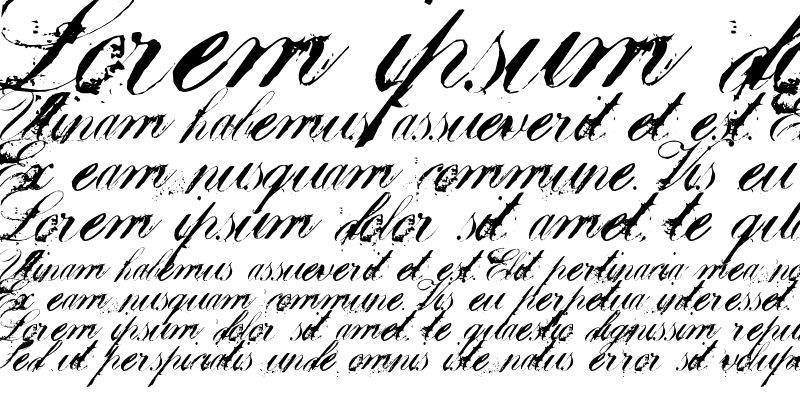 Lorem ipsum do
Utinam habemus assueverit et est. E
Ex eam nusquam commune. Vis eu
Lorem ipsum dolor sit amet, te qua
Utinam habemus assueverit et est. Elit pertinacia mea no
Ex eam nusquam commune. Vis eu perpetua interesset
Lorem ipsum dolor sit amet, te quaestio dignissim repu
Sed ut perspiciatis unde omnis iste natus error sit volupt